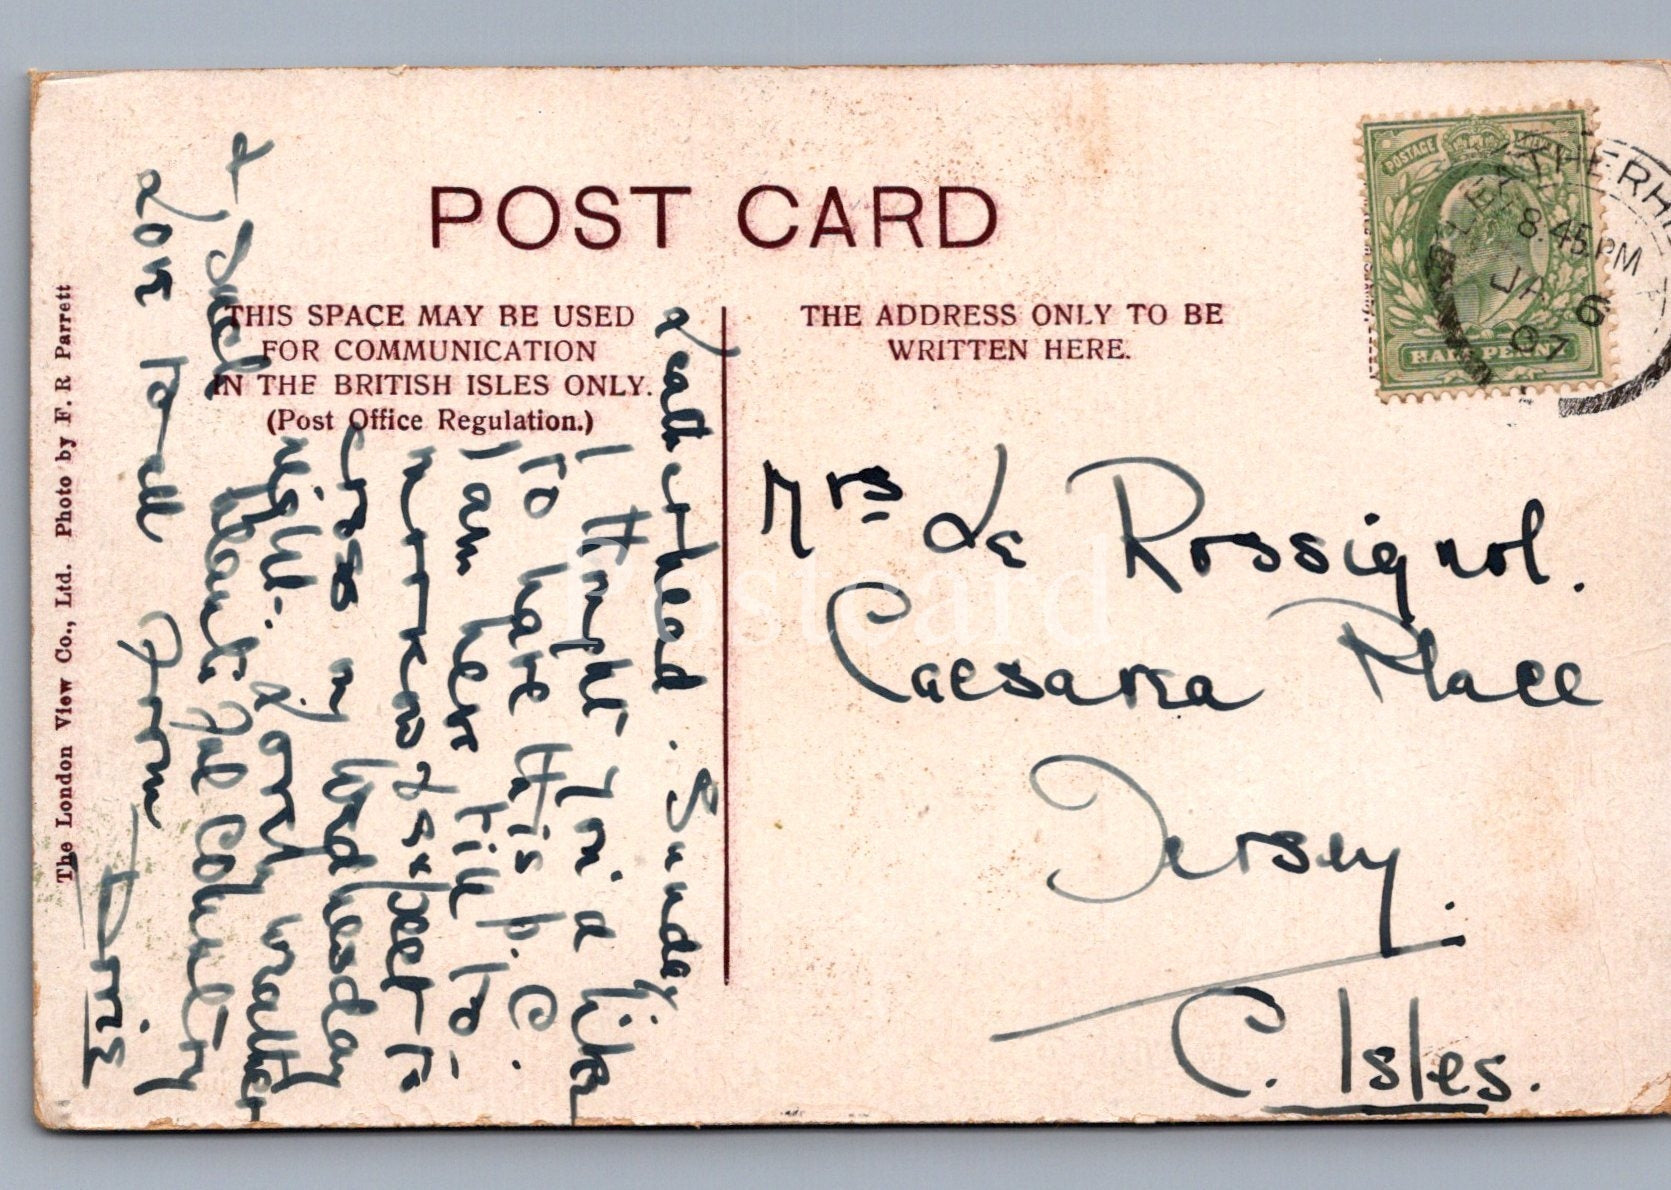 POST CARD
THIS SPACE MAY BE USED
FOR COMMUNICATION
IN THE BRITISH ISLES ONLY.
(Post Office Regulation.)
THE ADDRESS ONLY TO BE
WRITTEN HERE.
The London View Co., Ltd. Photo by F. R Parrett
Leatherhead. Sunday
I thought you'd like
to have this p.c.
I am here till to-
morrow & expect to
cross on Wednesday
night. Jolly weather
& such beautiful country
Love to all from
Doris
Mrs Le Rossignol.
Caesarea Place
Jersey.
C. Isles.
POSTAGE
HALF PENNY
8.45 PM
JA 6
07
Postcard